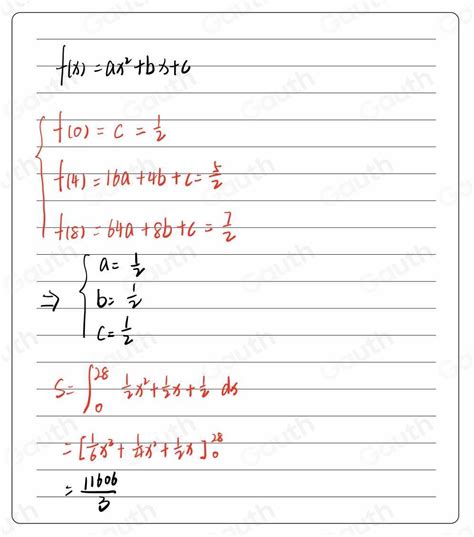 f(x) = ax² + bx + c
f(0) = c = 1/2
f(4) = 16a + 4b + c = 5/2
f(8) = 64a + 8b + c = 7/2
⇒ { a = 1/2
b = 1/2
c = 1/2
S = ∫₀²⁸ 1/2x² + 1/2x + 1/2 dx
= [1/6x³ + 1/4x² + 1/2x]₀²⁸
= 11606/3
Gauth